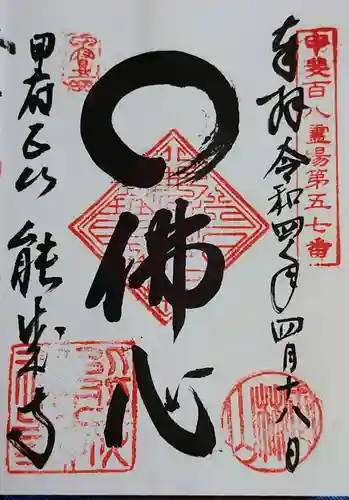 甲斐百八霊場第五七番
奉拝 令和四年四月十八日
佛心
甲府五山 能成寺